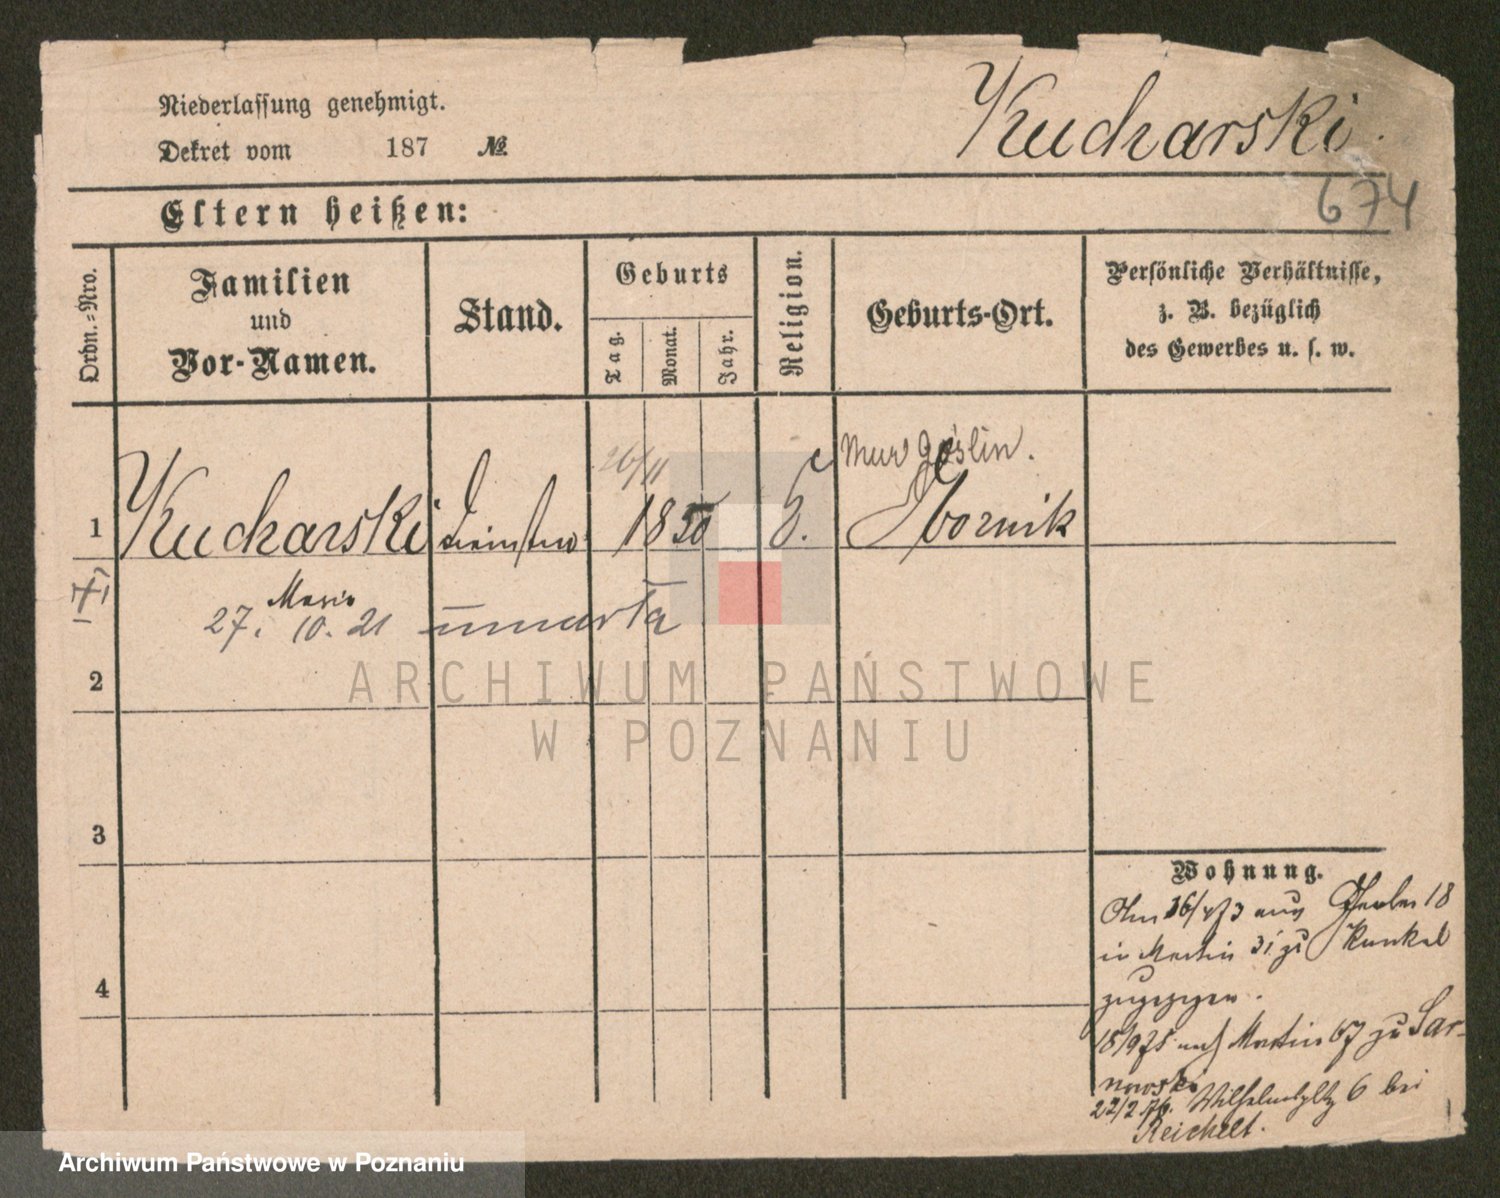 Niederlassung genehmigt.
Kucharski.
Dekret vom 187 №
674
Eltern heißen:
Ordn.-Nro.
Familien
und
Vor-Namen.
Stand.
Geburts
Tag.
Monat.
Jahr.
Religion.
Geburts-Ort.
Persönliche Verhältnisse,
z. B. bezüglich
des Gewerbes u. s. w.
26/11
Mur Goslin.
1 Kucharski 1850 Obornik
27. 10. 21 umarła
2
3
4
Wohnung.
Am 16/4 73 aus 18
in Martin 31 zu Kunkel
zugezogen.
18/9 75 nach Martin 67 zu Sar-
nowski
22/2 76. Wilhelmsplatz 6 bei
Reichelt.
ARCHIWUM PAŃSTWOWE
W POZNANIU
Archiwum Państwowe w Poznaniu